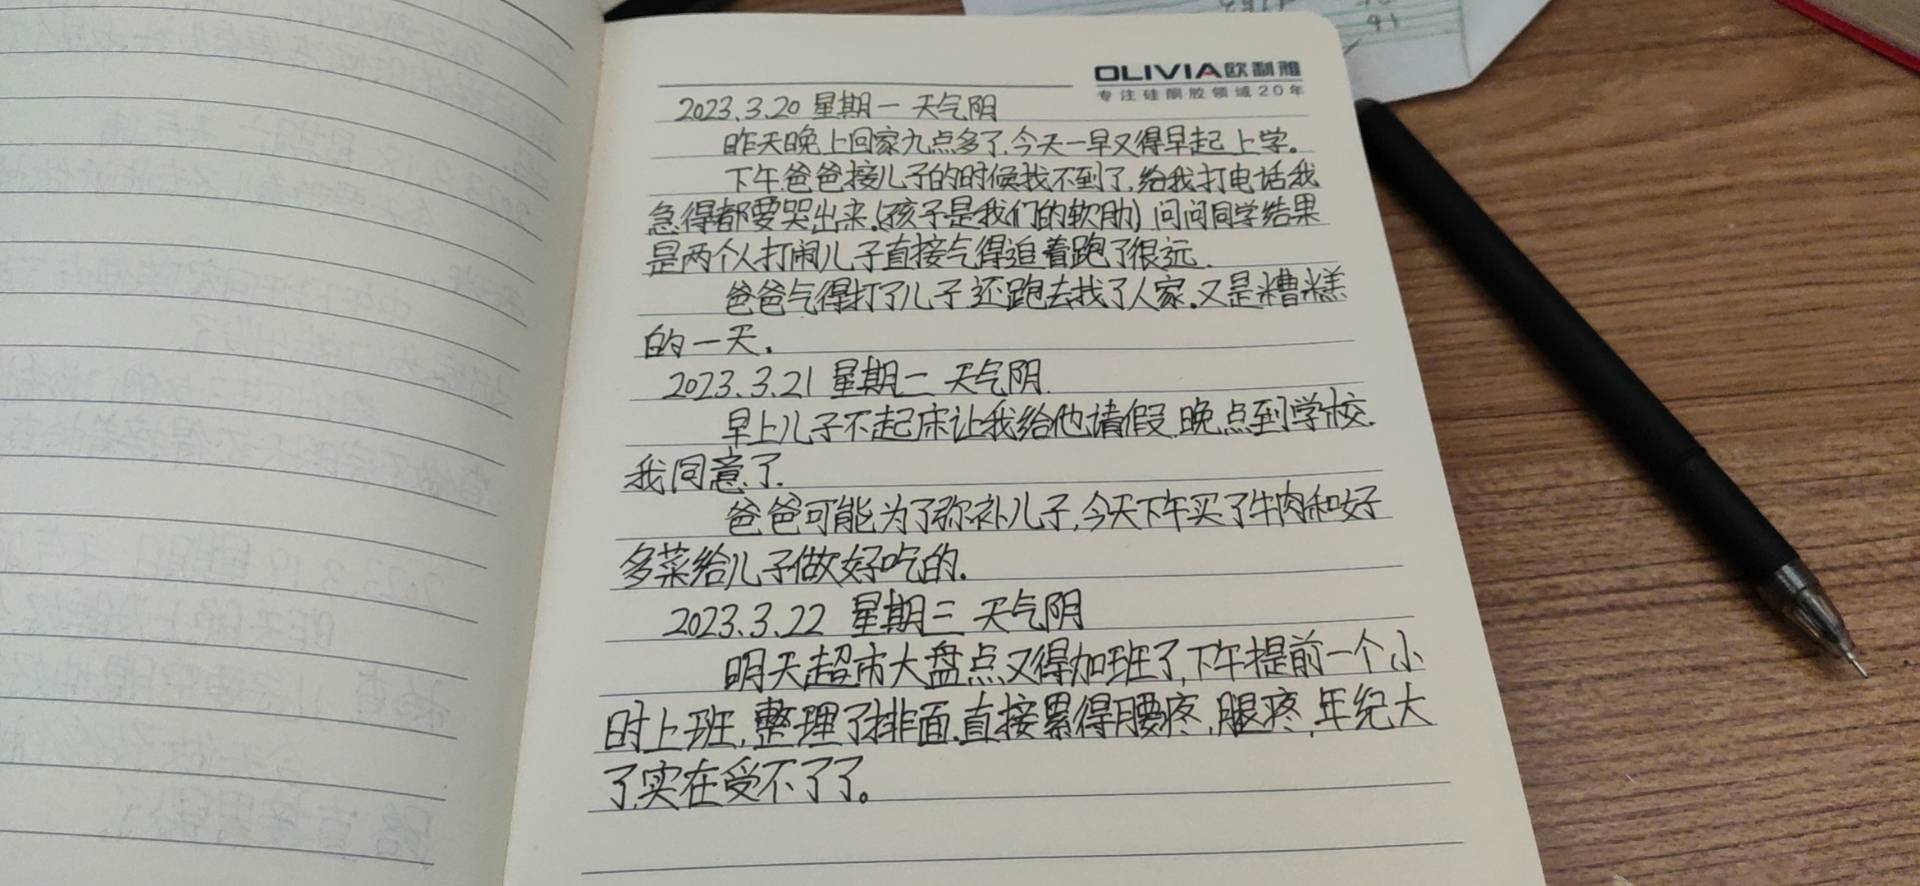 OLIVIA欧利雅
专注硅酮胶领域20年
2023.3.20 星期一 天气阴
昨天晚上回家九点多了,今天一早又得早起上学。
下午爸爸接儿子的时候找不到了,给我打电话我
急得都要哭出来.(孩子是我们的软肋)问问同学结果
是两个人打闹儿子直接气得追着跑了很远.
爸爸气得打了儿子还跑去找了人家.又是糟糕
的一天.
2023.3.21 星期二 天气阴.
早上儿子不起床让我给他请假.晚点到学校.
我同意了.
爸爸可能为了弥补儿子,今天下午买了牛肉和好
多菜给儿子做好吃的.
2023.3.22 星期三 天气阴
明天超市大盘点又得加班了,下午提前一个小
时上班,整理了排面.直接累得腰疼,腿疼,年纪大
了,实在受不了了。
91